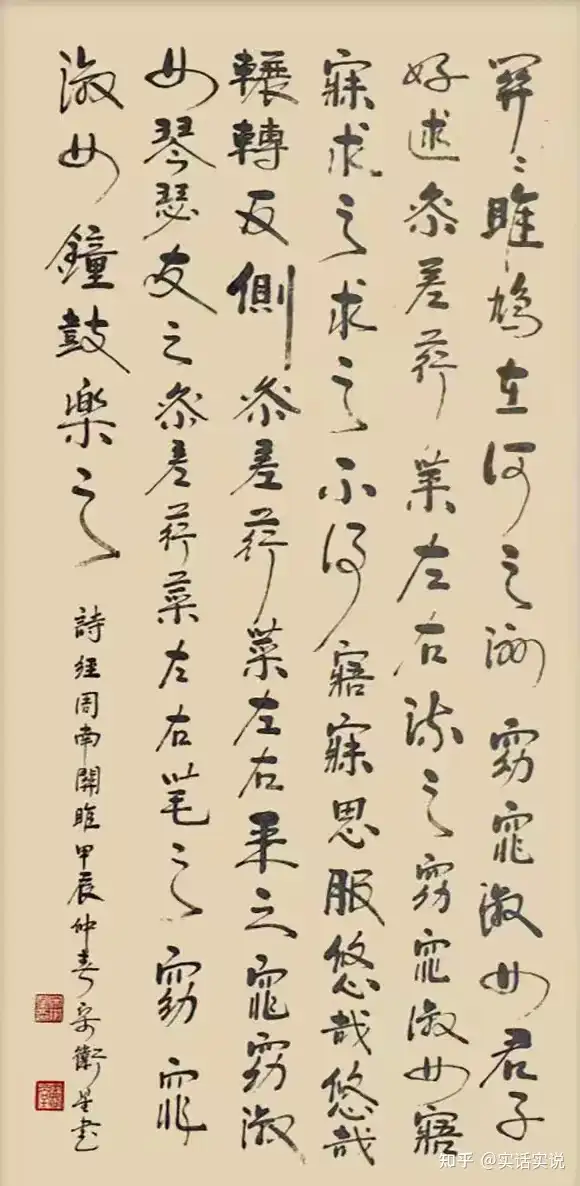 關〻雎鳩在河之洲窈窕淑女君子
好逑參差荇菜左右流之窈窕淑女寤
寐求之求之不得寤寐思服悠哉悠哉
輾轉反側參差荇菜左右采之窕窈淑
女琴瑟友之參差荇菜左右芼之窈窕
淑女鐘鼓樂之
詩經周南關雎甲辰仲春宋衛星書
知乎 @实话实说